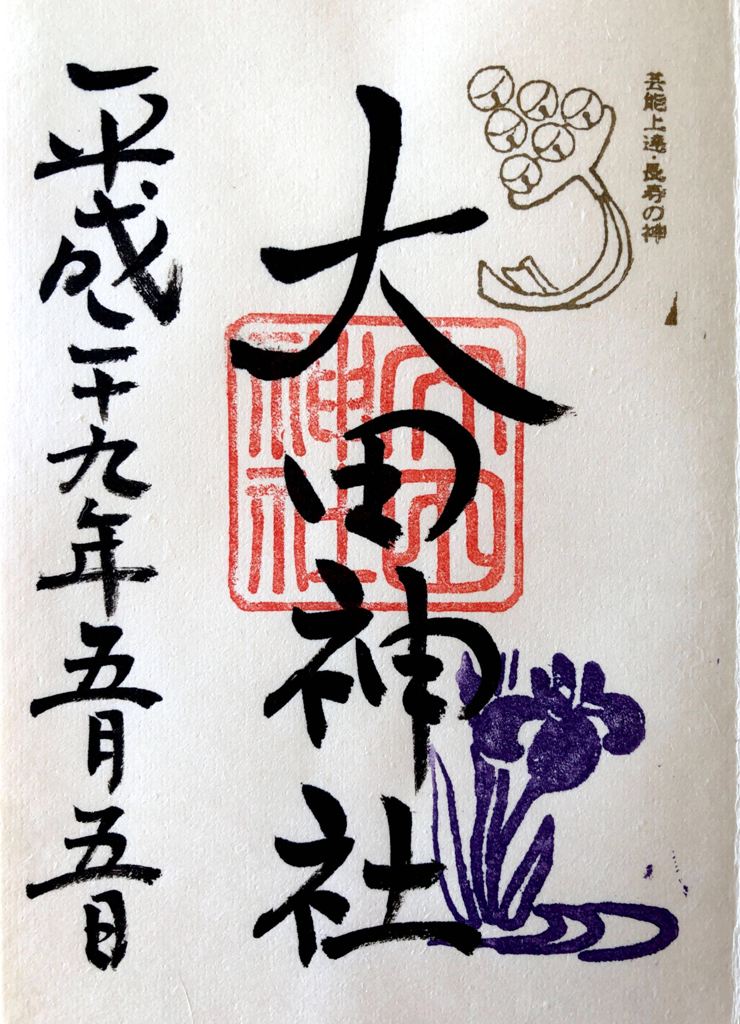 芸能上達・長寿の神
大田神社
大田神社
平成二十九年五月五日